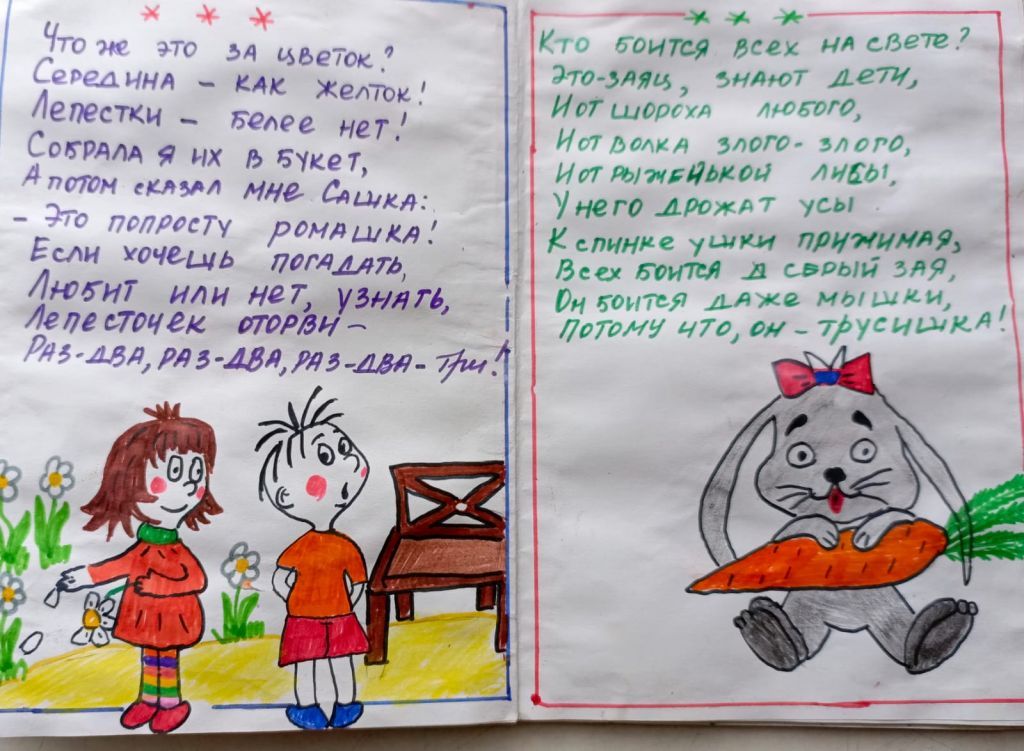 * * *
Что же это за цветок?
Середина - как желток!
Лепестки - белее нет!
Собрала я их в букет,
А потом сказал мне Сашка:
- Это попросту ромашка!
Если хочешь погадать,
Любит или нет, узнать,
Лепесточек оторви -
Раз-два, раз-два, раз-два-три!
* * *
Кто боится всех на свете?
Это-заяц, знают дети,
И от шороха любого,
И от волка злого-злого,
И от рыженькой лисы,
У него дрожат усы
К спинке ушки прижимая,
Всех боится д серый зая,
Он боится даже мышки,
Потому что, он - трусишка!